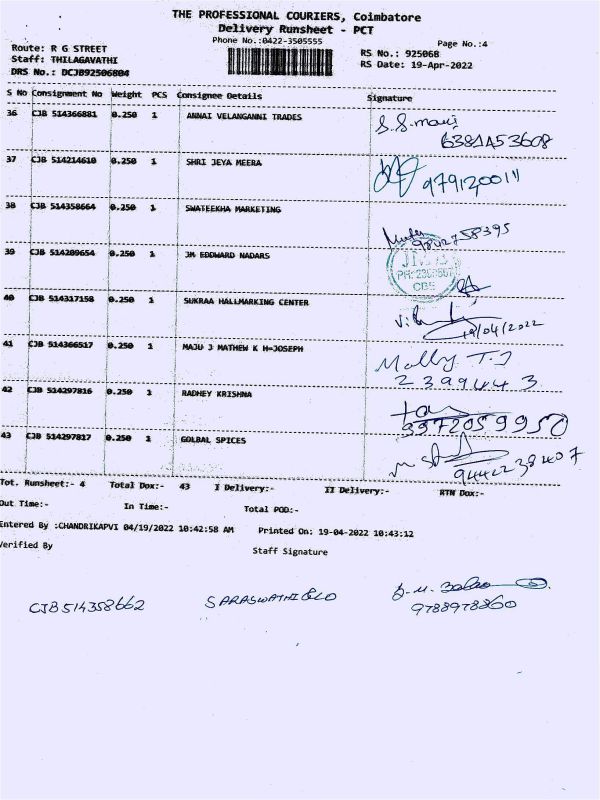 THE PROFESSIONAL COURIERS, Coimbatore
Delivery Runsheet - PCT
Phone No.:0422-3505555
Page No.:4
Route: R G STREET
RS No.: 925068
Staff: THILAGAVATHI
RS Date: 19-Apr-2022
DRS No.: DCJB92506804
S No Consignment No Weight PCS Consignee Details Signature
36 CJB 514366881 0.250 1 ANNAI VELANGANNI TRADES
S.S.mari
37 CJB 514214610 0.250 1 SHRI JEYA MEERA
38 CJB 514358664 0.250 1 SWATEEKHA MARKETING
9842758395
39 CJB 514289654 0.250 1 JM EDDWARD NADARS
CBE
40 CJB 514317158 0.250 1 SUKRAA HALLMARKING CENTER
19/04/2022
41 CJB 514366517 0.250 1 MAJU J MATHEW K H-JOSEPH
Molly T.J
2399443
42 CJB 514297816 0.250 1 RADHEY KRISHNA
9972059950
43 CJB 514297817 0.250 1 GOLBAL SPICES
9442238407
Tot. Runsheet:- 4 Total Dox:- 43 I Delivery:- II Delivery:- RTN Dox:-
Out Time:- In Time:- Total POD:-
Entered By :CHANDRIKAPVI 04/19/2022 10:42:58 AM Printed On: 19-04-2022 10:43:12
Verified By
Staff Signature
CJB514358662 SARASWATHI &CO
9788978860